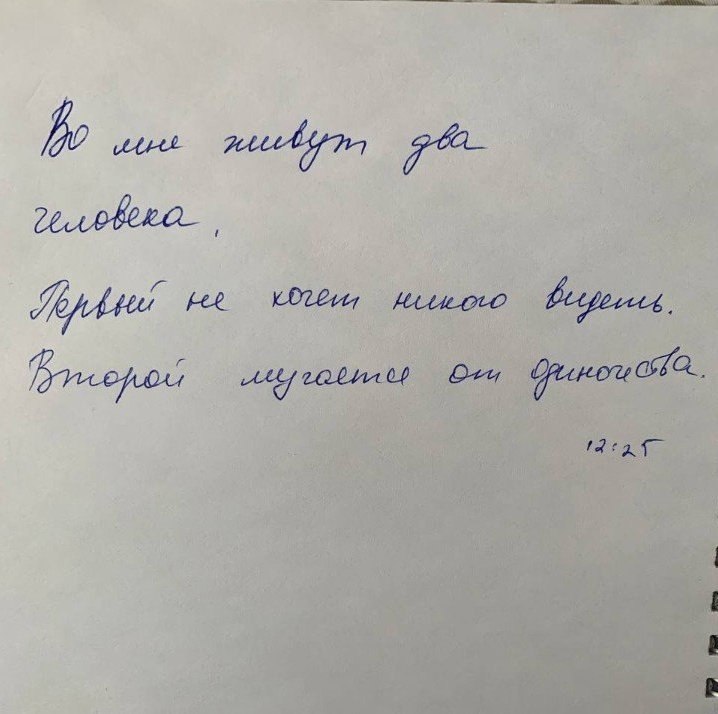 Во мне живут два
человека.
Первый не хочет никого видеть.
Второй мучается от одиночества.
12:25